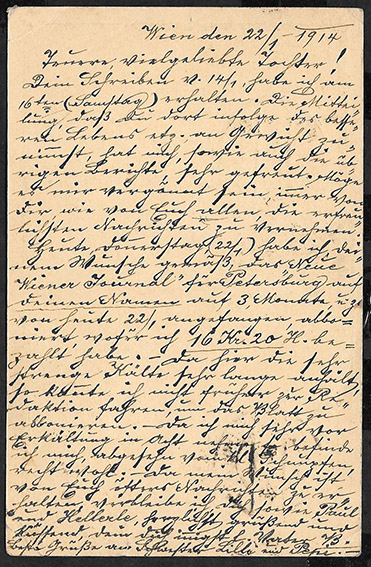 Wien den 22/1 1914
Teuere, vielgeliebte Tochter!
Dein Schreiben v. 14/1 habe ich am
16ten (Samstag) erhalten. Die Mittei-
lung, daß Du dort infolge des besse-
ren Lebens etz. an Gewicht zu-
nimmst, hat mich, sowie auch die üb-
rigen Berichte, sehr gefreut. Möge
es mir vergönnt sein, immer von
Dir, wie von Euch allen, die erfreu-
lichsten Nachrichten zu vernehmen.
Heute, Donnerstag (22/1) habe ich, dei-
nem Wunsche gemäß, das "Neue
Wiener Journal" für Petersburg auf
deinen Namen auf 3 Monate, u. z.
von heute 22/1 angefangen abbo-
niert wofür ich 16 Kr. 20 H. be-
zahlt habe. – Da hier die sehr
strenge Kälte sehr lange anhält,
so konnte ich nicht früher zur Re-
daktion fahren, um das Blatt zu
abbonieren. – Da ich mich sehr vor
Erkältung in Acht befinde
ich mich, abgesehen vom Schnupfen,
recht wohl. – Da mein Wunsch ist,
von Euch öfters Nachricht zu er-
halten, verbleibe ich sowie Paul
und Hellerle, herzlichst grüßend und
küssend, Dein dich Vater
beste Grüße an Lilli und Pepi. –